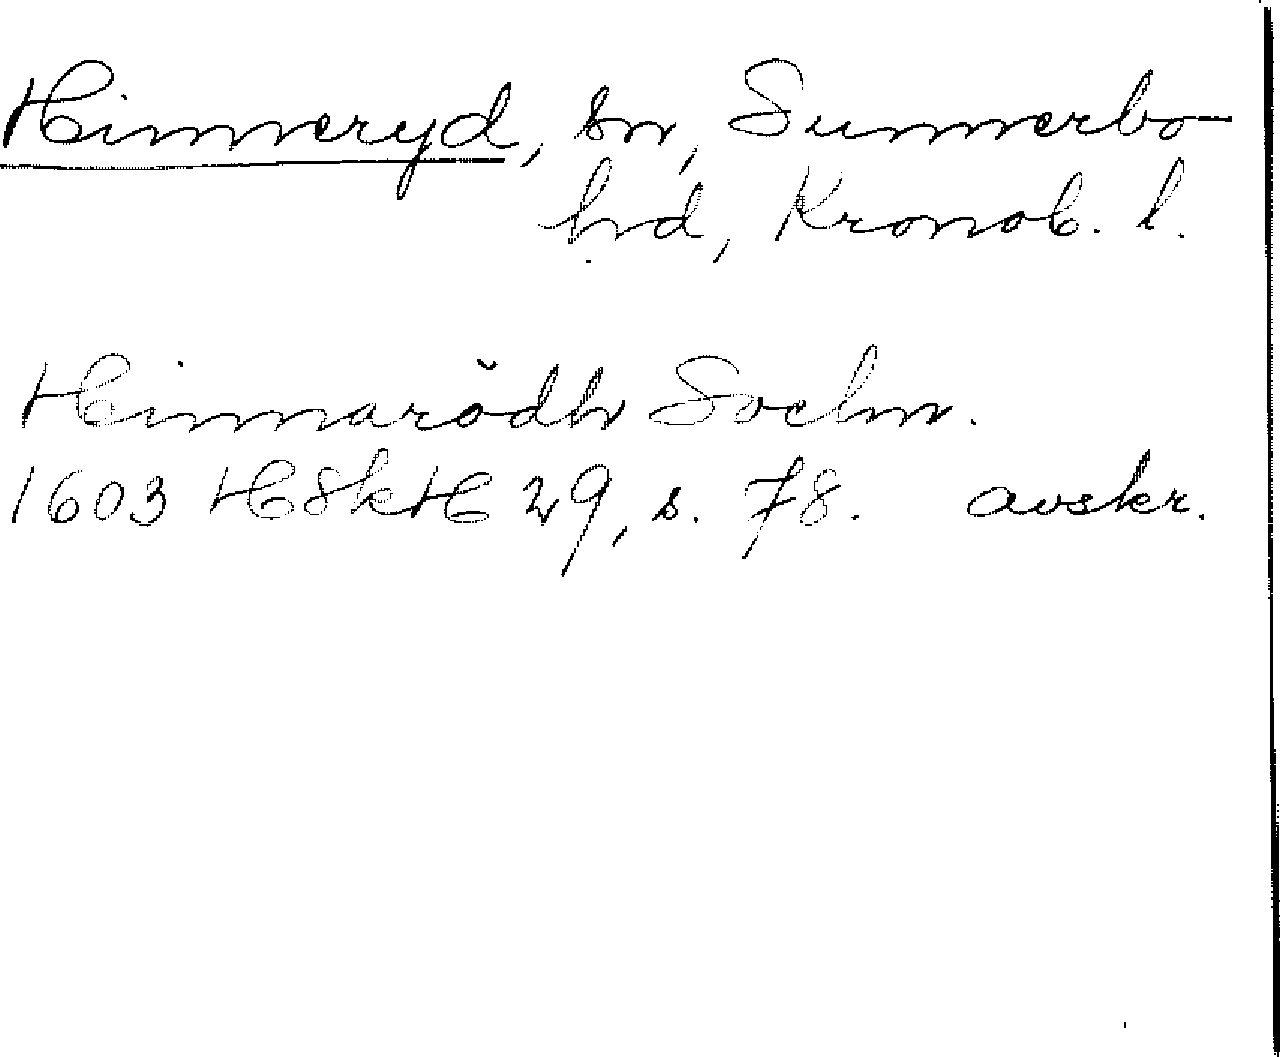 Hinneryd, sn, Sunnerbo
hd, Kronob. l.
Hinnarödh Sochn.
1603 HSkH 29, s. 78. avskr.